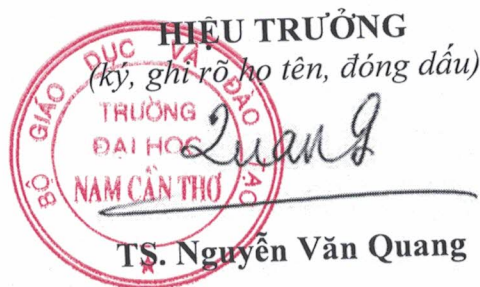 HIỆU TRƯỞNG
(ký, ghi rõ họ tên, đóng dấu)
BỘ GIÁO DỤC VÀ ĐÀO TẠO
TRƯỜNG
ĐẠI HỌC
NAM CẦN THƠ
Quang
TS. Nguyễn Văn Quang